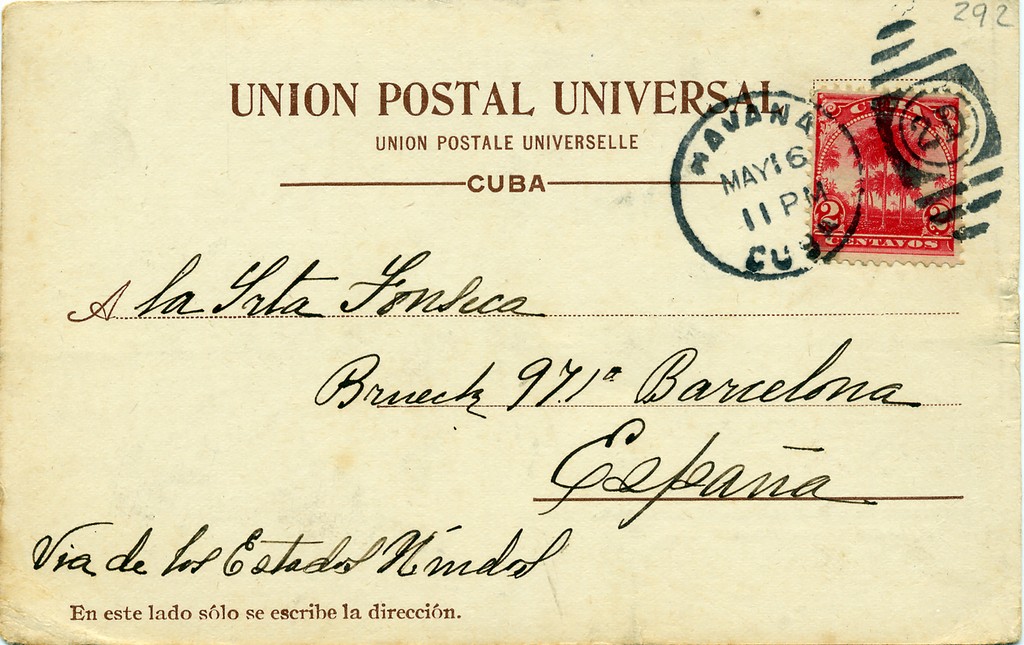 292
UNION POSTAL UNIVERSAL
UNION POSTALE UNIVERSELLE
CUBA
HAVANA
MAY 16
11 PM
CUBA
CUBA
2 2
CENTAVOS
A la Srta Fonseca
Brueck 97 1ª Barcelona
España
Via de los Estados Unidos
En este lado sólo se escribe la dirección.